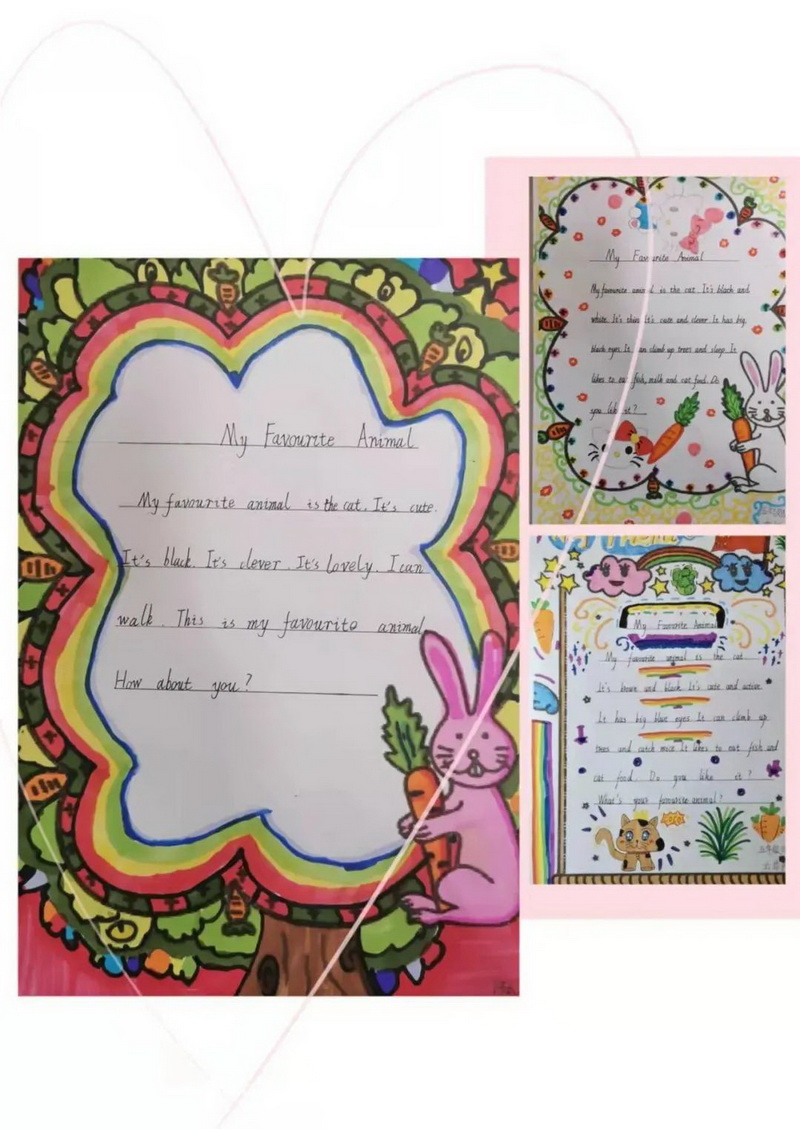 My Favourite Animal
My favourite animal is the cat. It's cute.
It's black. It's clever. It's lovely. I can
walk. This is my favourite animal
How about you?
My Favourite Animal
My favourite animal is the cat. It's black and
white. It's cute and clever. It has big
black eyes. It can climb up trees and sleep. It
likes to eat fish, milk and cat food. Do
you like it?
My Favourite Animal
My favourite animal is the cat
It's brown and black. It's cute and active
It has big blue eyes. It can climb up
trees and catch mice. It likes to eat fish and
cat food. Do you like it?
What's your favourite animal?